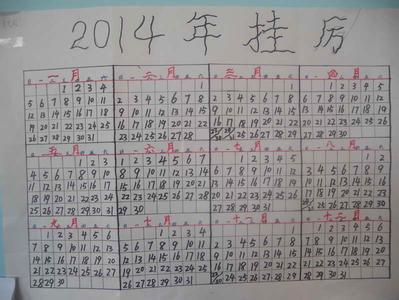 2014 年 挂 历
一月
1 2 3 4
5 6 7 8 9 10 11
12 13 14 15 16 17 18
19 20 21 22 23 24 25
26 27 28 29 30 31
二月
1
2 3 4 5 6 7 8
9 10 11 12 13 14 15
16 17 18 19 20 21 22
23 24 25 26 27 28
三月
1
2 3 4 5 6 7 8
9 10 11 12 13 14 15
16 17 18 19 20 21 22
23/30 24/31 25 26 27 28 29
四月
1 2 3 4 5
6 7 8 9 10 11 12
13 14 15 16 17 18 19
20 21 22 23 24 25 26
27 28 29 30
五月
1 2 3
4 5 6 7 8 9 10
11 12 13 14 15 16 17
18 19 20 21 22 23 24
25 26 27 28 29 30 31
六月
1 2 3 4 5 6 7
8 9 10 11 12 13 14
15 16 17 18 19 20 21
22 23 24 25 26 27 28
29 30
七月
1 2 3 4 5
6 7 8 9 10 11 12
13 14 15 16 17 18 19
20 21 22 23 24 25 26
27 28 29 30 31
八月
1 2
3 4 5 6 7 8 9
10 11 12 13 14 15 16
17 18 19 20 21 22 23
24/31 25 26 27 28 29 30
九月
1 2 3 4 5 6
7 8 9 10 11 12 13
14 15 16 17 18 19 20
21 22 23 24 25 26 27
28 29 30
十月
1 2 3 4
5 6 7 8 9 10 11
12 13 14 15 16 17 18
19 20 21 22 23 24 25
26 27 28 29 30 31
十一月
1
2 3 4 5 6 7 8
9 10 11 12 13 14 15
16 17 18 19 20 21 22
23/30 24 25 26 27 28 29
十二月
1 2 3 4 5 6
7 8 9 10 11 12 13
14 15 16 17 18 19 20
21 22 23 24 25 26 27
28 29 30 31